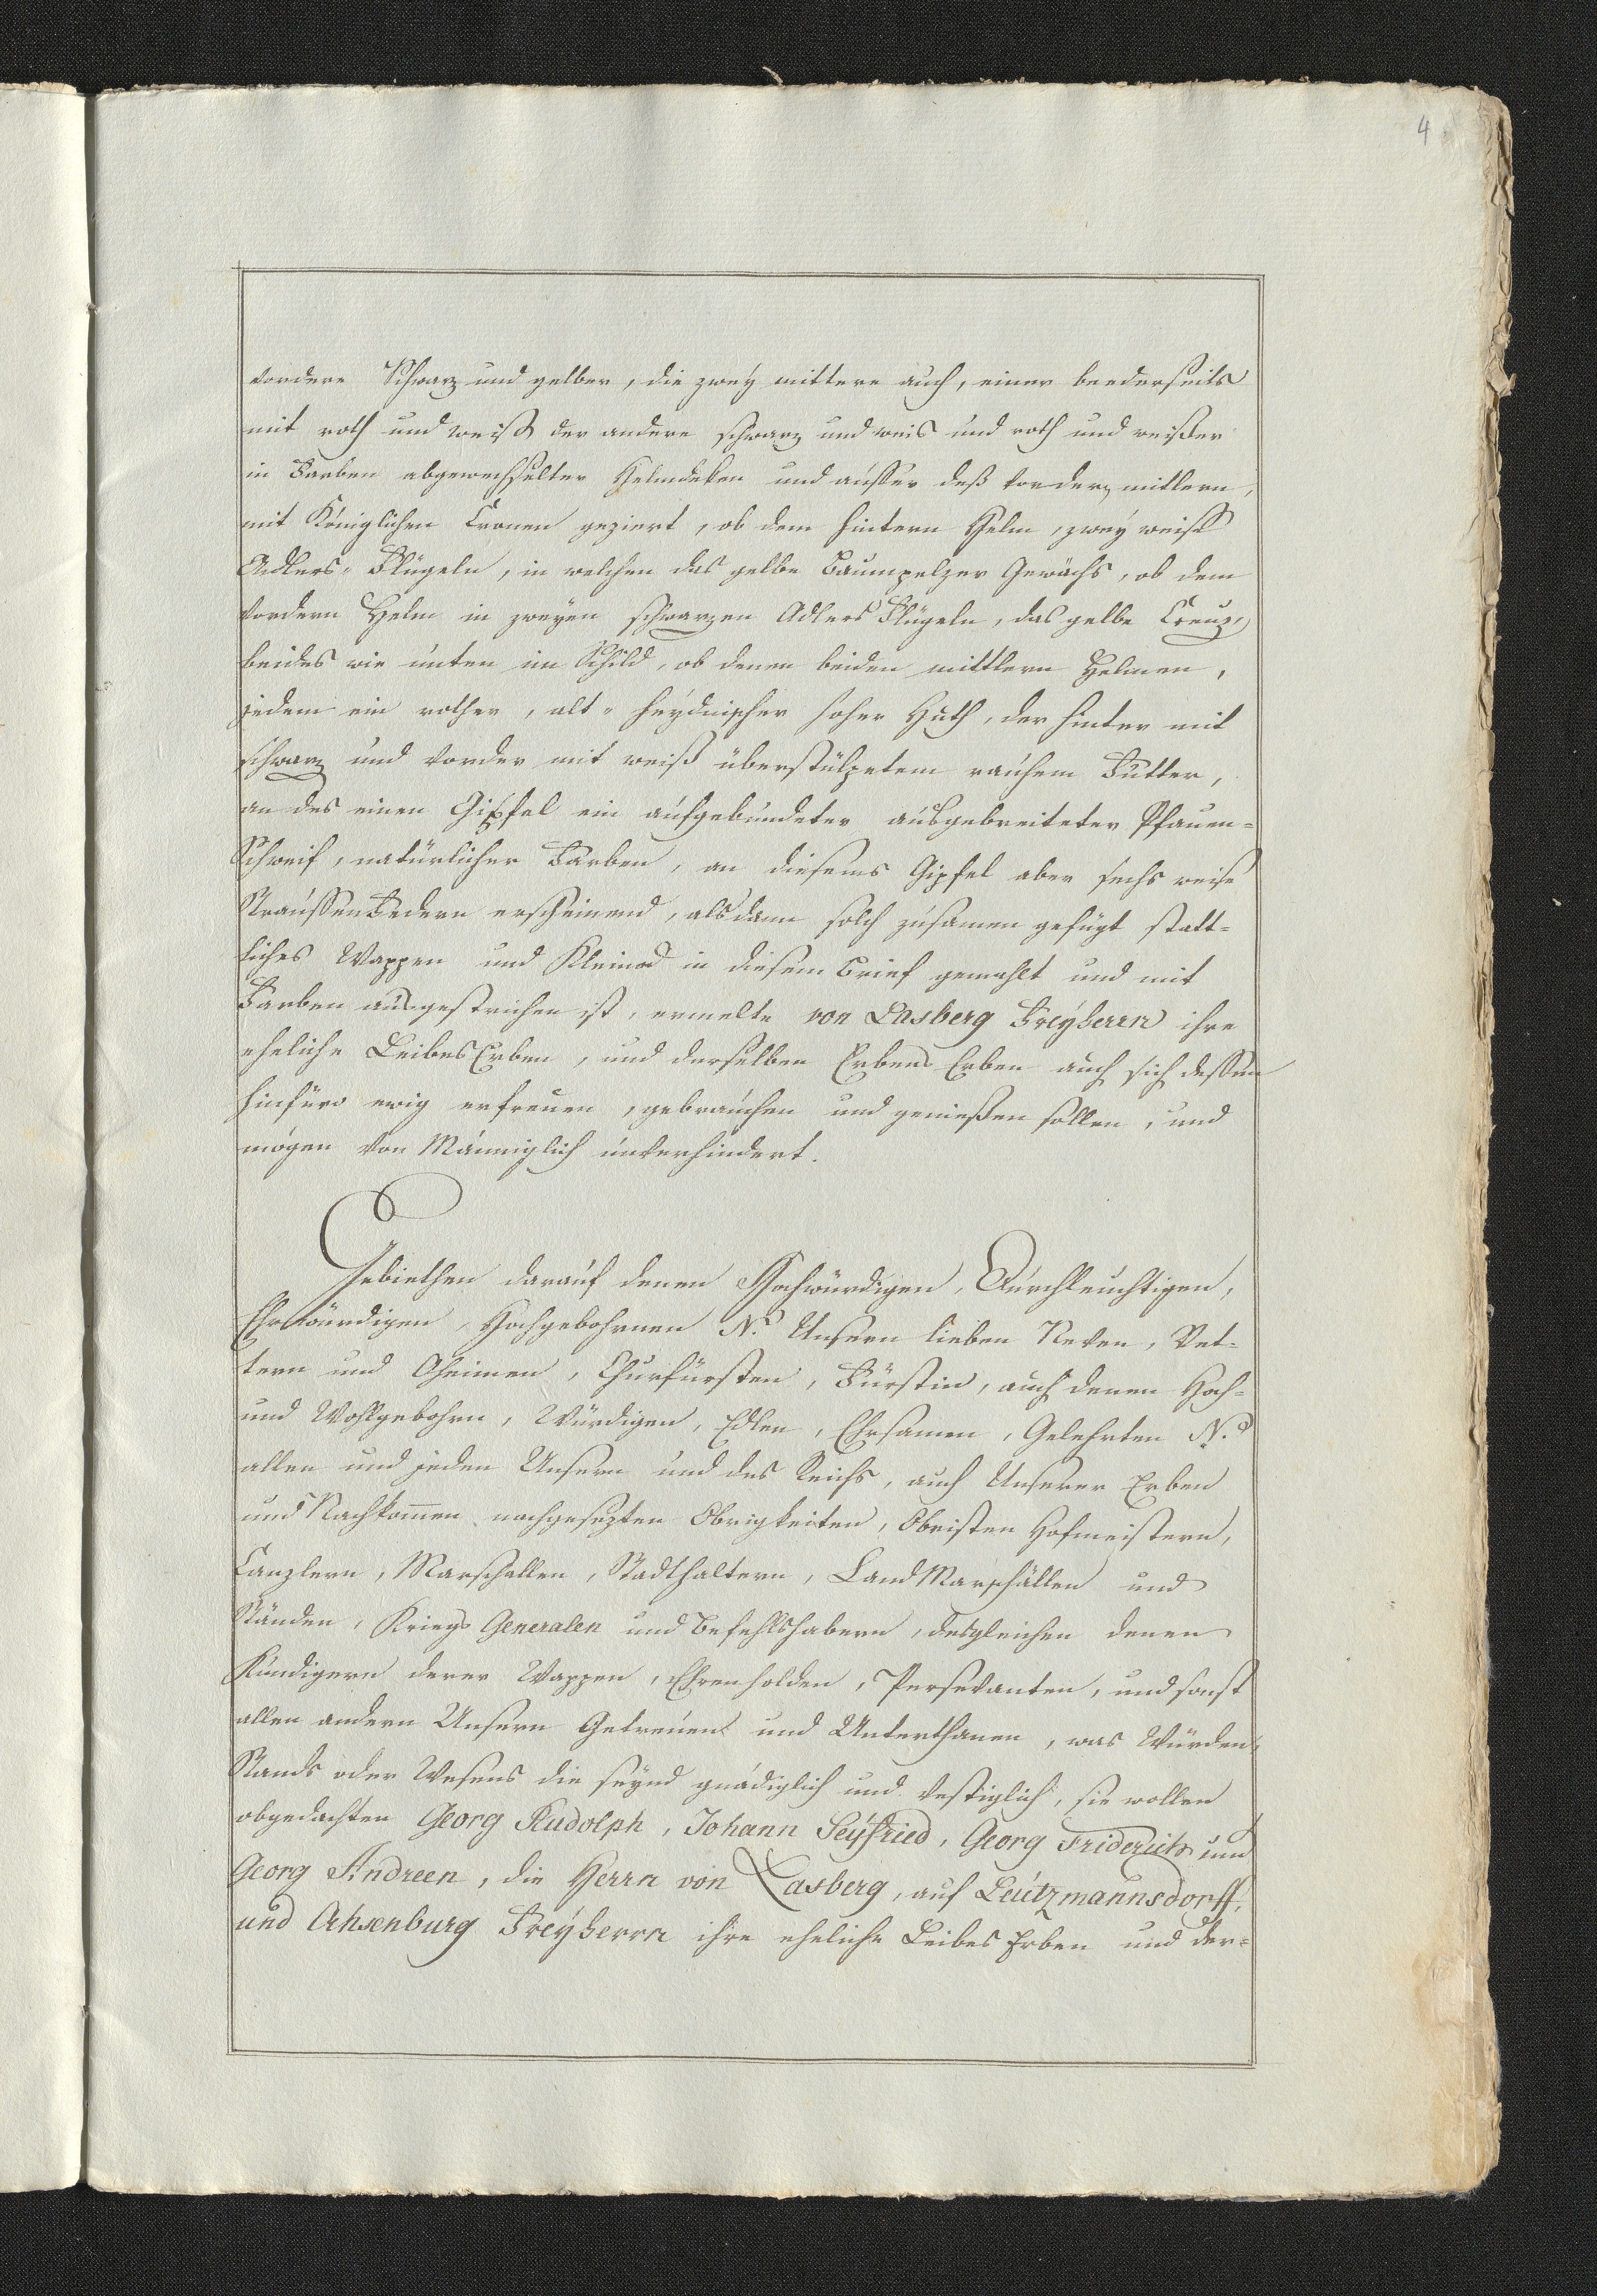 4
vordere Schwarz und gelber, die zweÿ mittere auch, einer beederseits
mit roth und weiß der andere schwarz und weis und roth und weißer
in Farben abgewechselter Helmdeken und ausser deß vordern mittlern,
mit Königlichen Cronen geziert, ob dem hintern Helm, zweÿ weiß
Adlers-Flügeln, in welchen das gelbe Baumpelzer Gewächs, ob dem
vordern Helm in zweÿen schwarzen Adlers Flügeln, das gelbe Creuz,
beides wie unten im Schild, ob denen beiden mittlern Helmen,
jedem ein rother, alt-heÿdnischer hoher Huth, der hinter mit
schwarz und vorder mit weiß überstülpetem rauhem Futter,
an des einen Gipfel ein aufgebundeter ausgebreiteter Pfauen-
Schweif, natürlicher Farben, an diesems Gipfel aber sechs weise
Straussen Federn erscheinend, alsdann solch zusamen gefügt statt-
liches Wappen und Kleinod in diesem Brief gemahlt und mit
Farben ausgestrichen ist, ermelte von Lasberg Freÿherrn ihre
eheliche Leibes Erben, und derselben Erbens Erben auch sich dessen
hinfüro ewig erfreuen, gebrauchen und genießen sollen, und
mögen von Männiglich unverhindert.
Gebiethen darauf denen Hochwürdigen, Durchleuchtigen,
Ehrwürdigen, Hochgebohrnen N. Unsern lieben Neven, Vet-
tern und Oheimen, Churfürsten, Fürstin, auch denen Hoch-
und Wohlgebohrn, Würdigen, Edlen, Ehrsamen, Gelehrten N.
allen und jeden Unsern und des Reichs, auch Unserer Erben
und Nachkom̅en nachgesezten Obrigkeiten, Obristen Hofmeistern,
Canzlern, Marschallen, Stadthaltern, Land Marschällen und
Ständen, Kriegs Generalen und Befehlshabern, desgleichen denen
Kündigern derer Wappen, Ehrenholden, Persevanten, und sonst
allen andern Unsern Getreuen und Unterthanen, was Würden,
Stands oder Wesens die seÿnd gnädiglich und vestiglich, sie wollen
obgedachten Georg Rudolph, Johann Seÿfried, Georg Friderich und
Georg Andreen, die Herrn von Lasberg, auf Leutzmannsdorff,
und Achsenburg Freÿherrn ihre eheliche Leibes Erben und der-